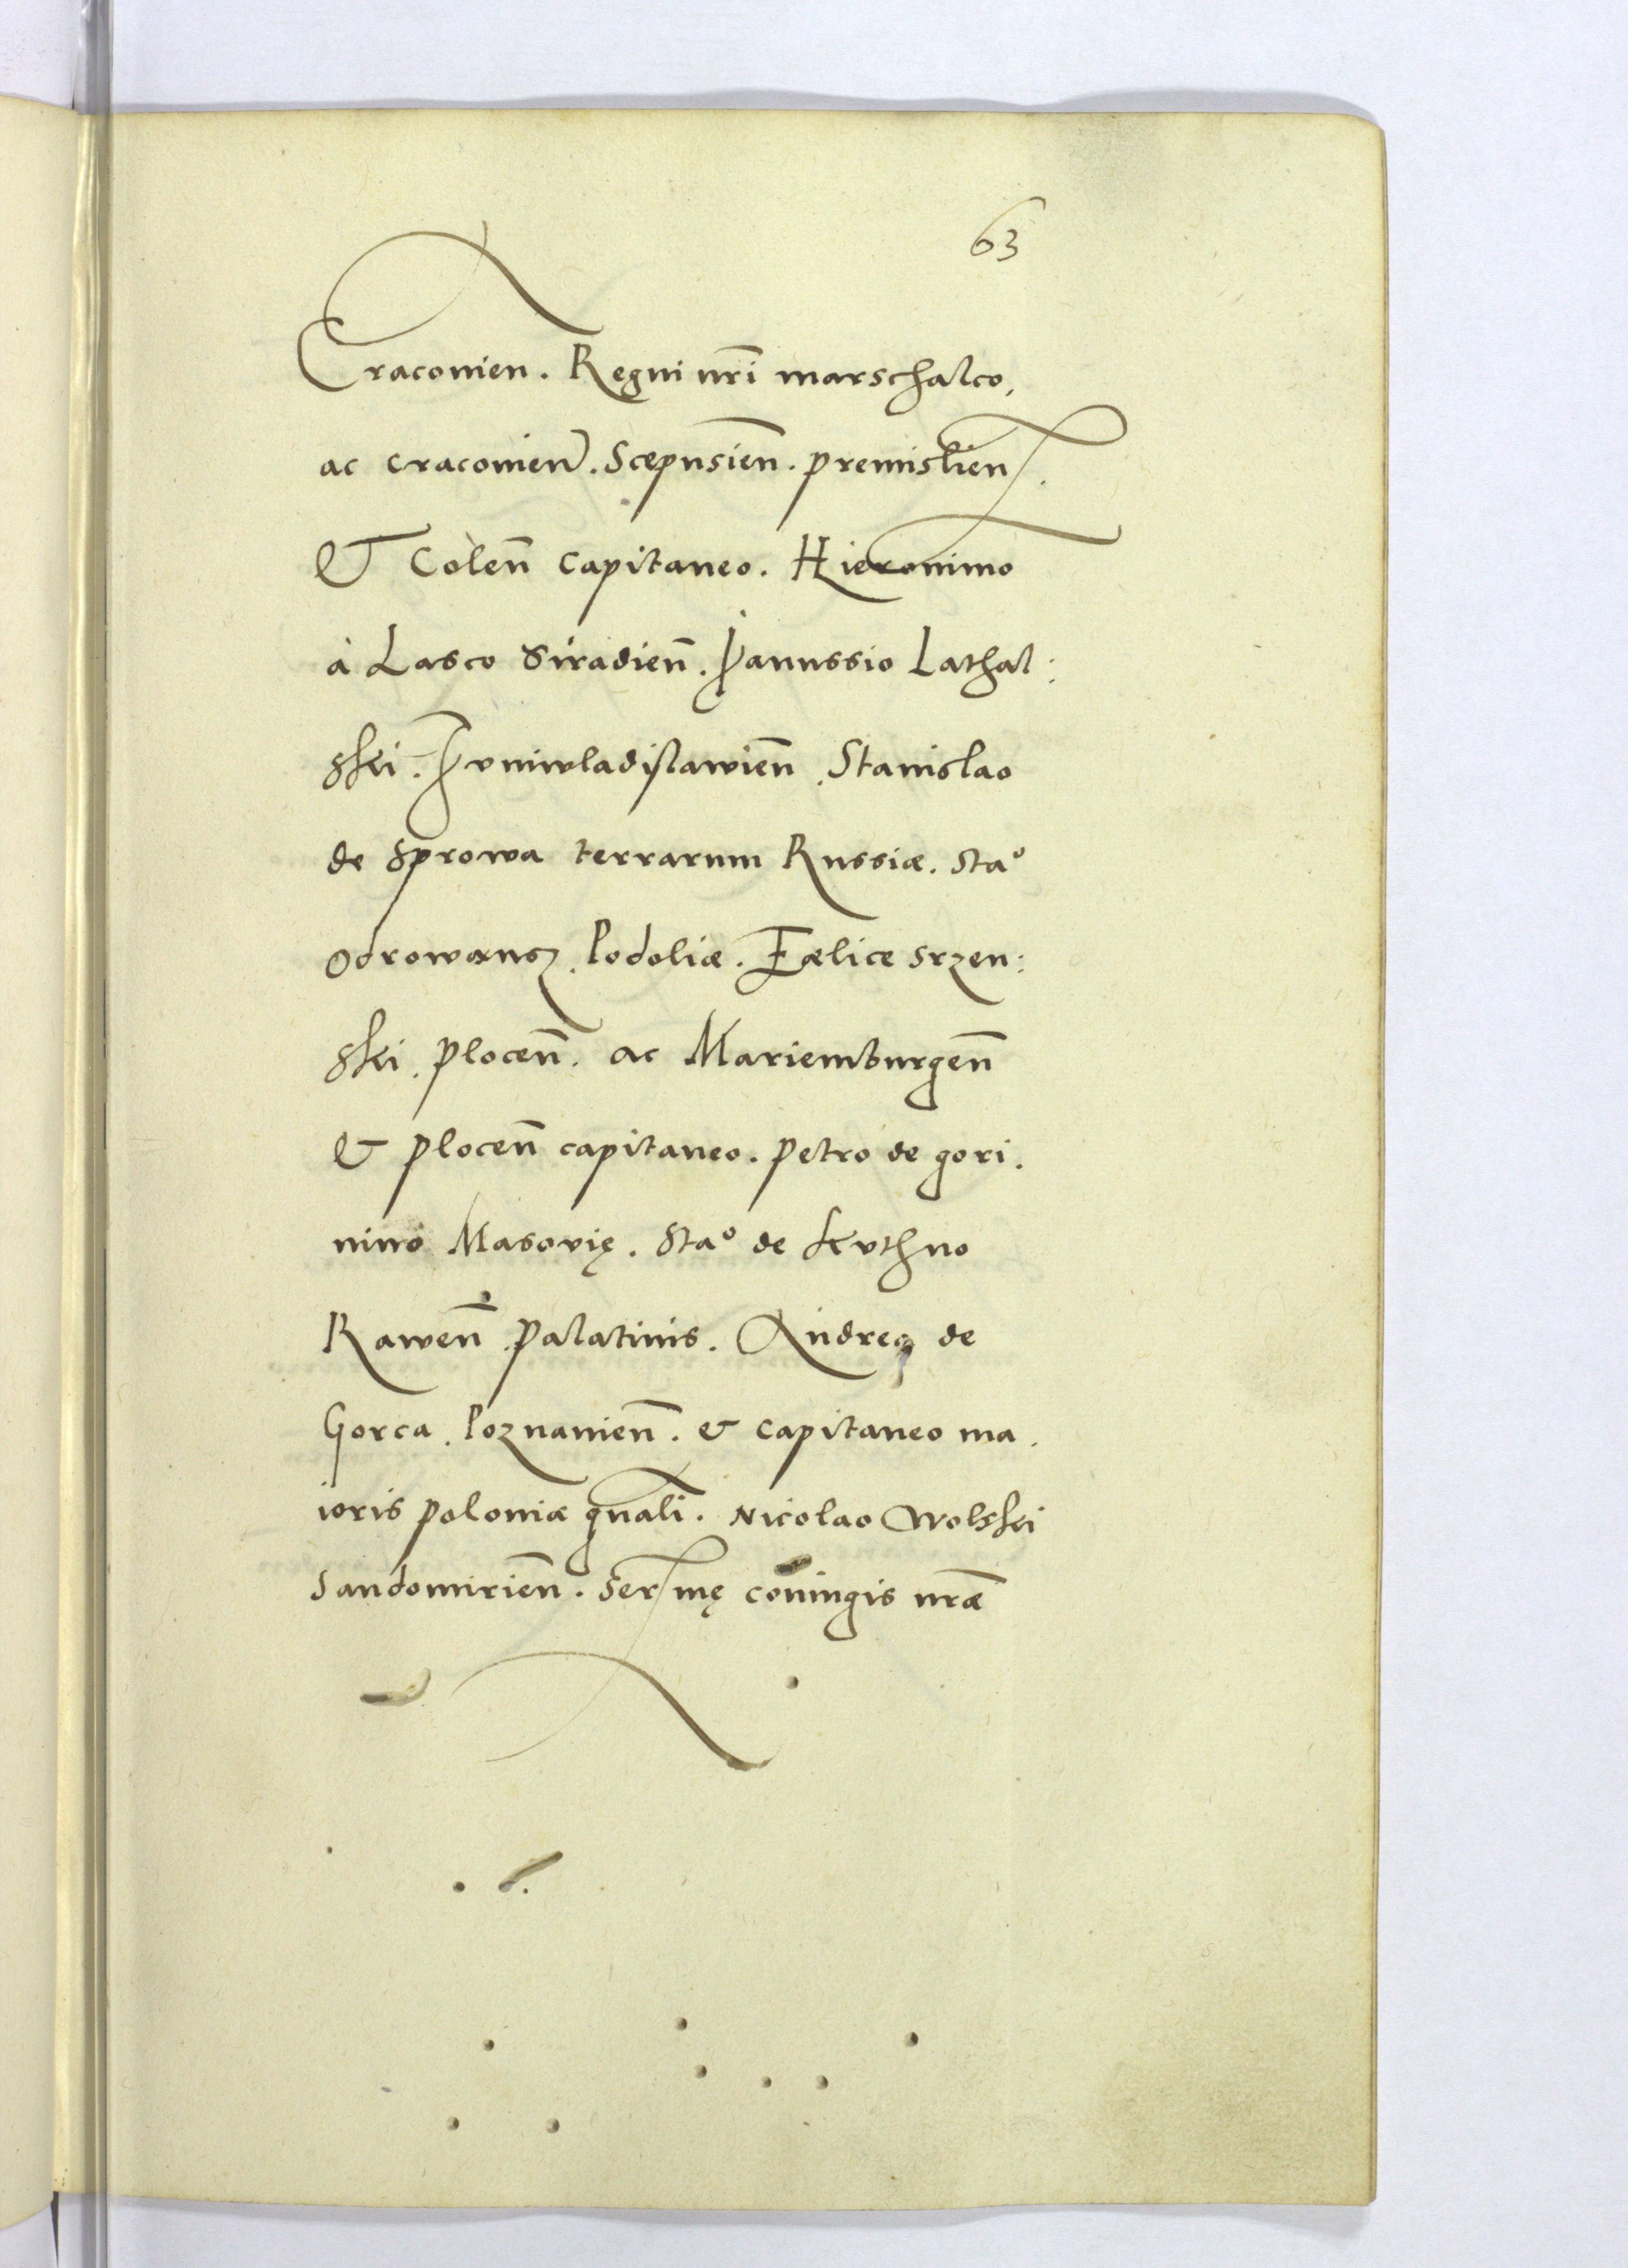 63
Craconien. Regni nr̄i marschalco,
ac craconien̄. Scepnsien̄. premislien̄.
& Colen̄ capitaneo. Hieronimo
à Lasco Siradien̄. Janussio Lathal:
ski. Juniwladislawien̄. Stanislao
de Sprowa terrarum Russiæ. Staº
Odrowansz. Podoliæ. Fælice Srzen:
ski. plocen̄. ac Mariemburgen̄
& plocen̄ capitaneo. petro de gori.
nino Masovię. Staº de kuthno
Rawen̄. palatinis. Andreę de
Gorca. Poznanien̄. & capitaneo ma.
ioris poloniæ gn̄ali. Nicolao Wolski
Sandomirien̄. Sermę coniugis nr̄æ